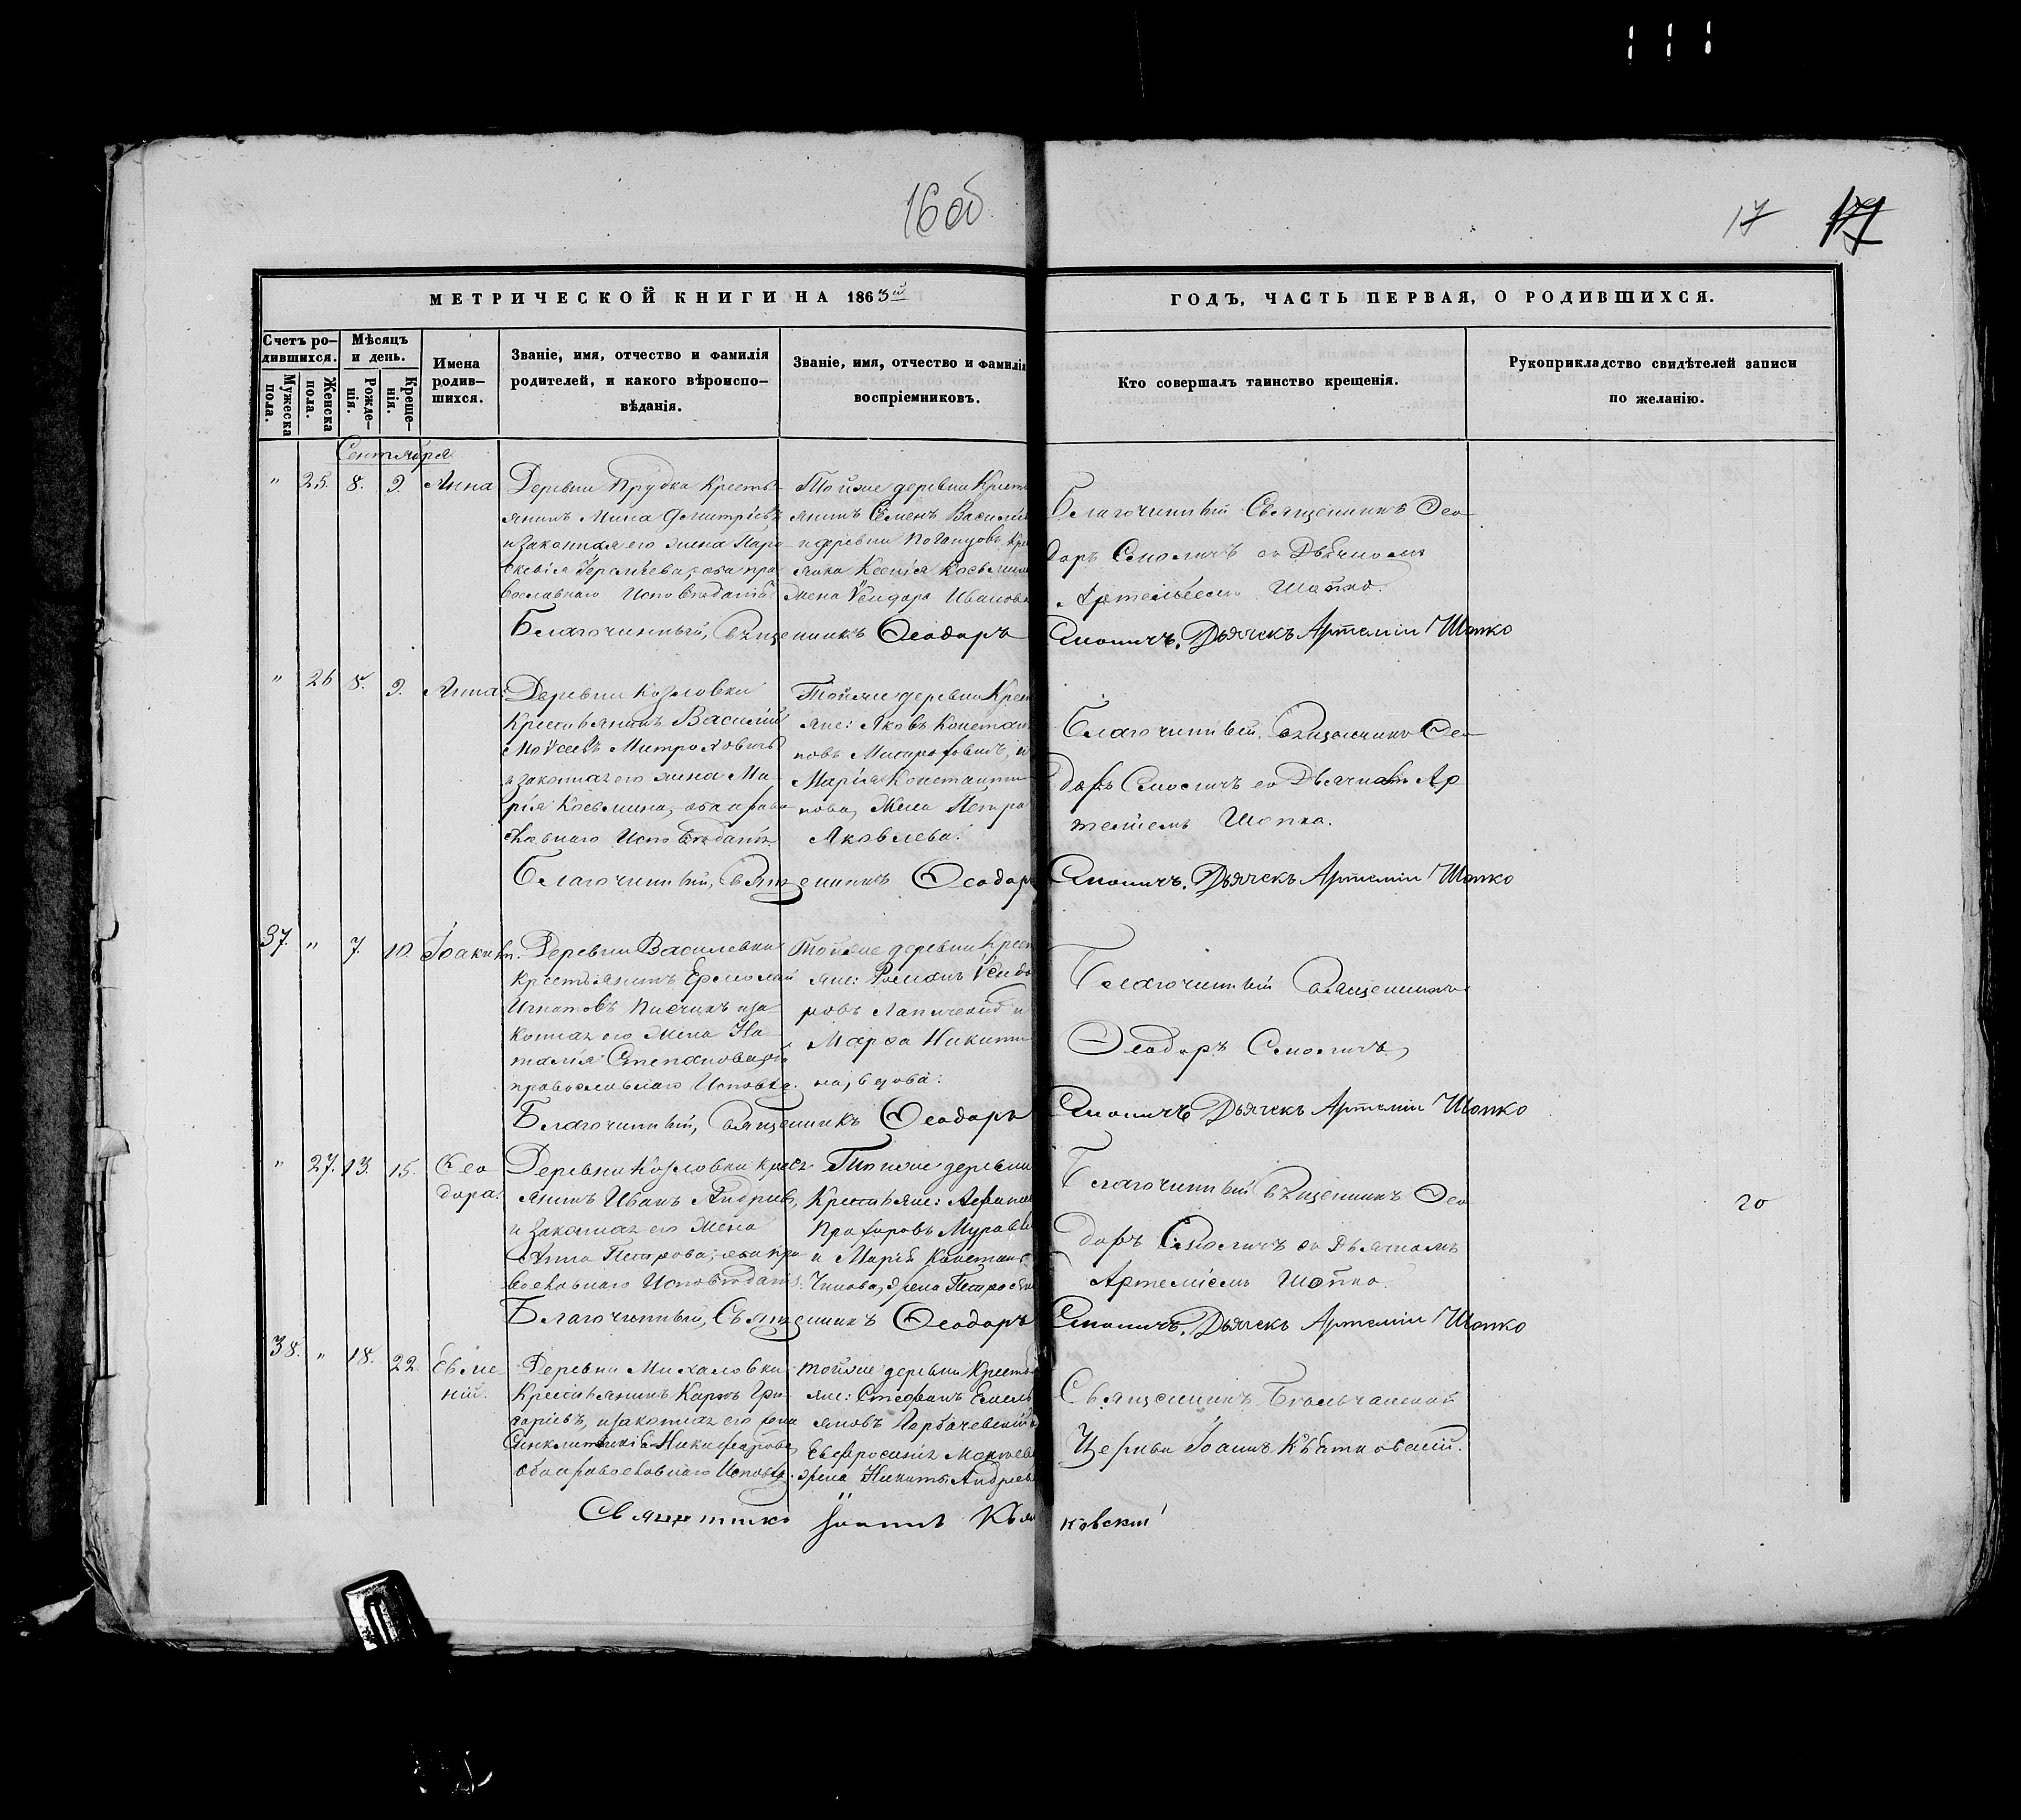 16 об
17 17
МЕТРИЧЕСКОЙ КНИГИ НА 1863й
ГОДЪ, ЧАСТЬ ПЕРВАЯ, О РОДИВШИХСЯ.
Счетъ ро-
дившихся.
Мужеска
пола.
Женска
пола.
Мѣсяцъ
и день.
Рожде-
нія.
Креще-
нія.
Имена
родив-
шихся.
Званіе, имя, отчество и фамилія
родителей, и какого вѣроиспо-
вѣданія.
Званіе, имя, отчество и фамилія
воспріемниковъ.
Кто совершалъ таинство крещенія.
Рукоприкладство свидѣтелей записи
по желанію.
Сентября
" 25. 8. 9. Анна
Деревни Прудка Кресть-
янинъ Мина Димитріевъ
и законная его жена Пара-
скевія; оба пра-
вославнаго Исповѣданія
Тойже деревни Крест
янинъ Семенъ Василіе
и деревни
Ксенія Косьмина
жена Ивано
Благочинный Священникъ Ѳео-
доръ Смоличъ со Дьячкомъ
Артеміемъ Шопко.
Благочинный, Священникъ Ѳеодоръ Смоличъ. Дьячекъ Артемій Шопко
" 26 8. 9. Анна.
Деревни Козловки
Крестьянинъ Василій
Моѵсеевъ Митрофовичъ
и законная его жена Ма-
рія Косьмина, оба право-
славнаго Исповѣданія
Тойже деревни Крест
яне: Яковъ Констан
новъ Митрофовичъ, и
Марія Константи
нова, Жена Петра
Яковлева.
Благочинный, Священникъ Ѳео-
доръ Смоличъ со Дьячкомъ Ар
теміемъ Шопко.
Благочинный, Священникъ Ѳеодоръ Смоличъ. Дьячекъ Артемій Шопко
37. " 7. 10. Іоакимъ.
Деревни Василевки
Крестьянинъ Ермолай
Игнатовъ и за
конная его жена На
талія Степанова, оба
православнаго Исповѣд.
Тойже деревни Крест
яне: Романъ
ровъ и
Марѳа Никити
на, вдова.
Благочинный Священникъ
Ѳеодоръ Смоличъ,
Благочинный, Священникъ Ѳеодоръ Смоличъ Дьячекъ Артемій Шопко
" 27. 13. 15. Ѳео
дора.
Деревни Козловки крест
янинъ Иванъ Андреевъ,
и законная его жена
Анна Петрова, оба пра-
вославнаго Исповѣданія.
Тойже деревни
Крестьяне:
Муравье
и Марія Констан
тинова, жена Петра
Благочинный Священникъ Ѳео
доръ Смоличъ со Дьячкомъ
Артеміемъ Шопко.
20
Благочинный, Священникъ Ѳеодоръ Смоличъ. Дьячекъ Артемій Шопко
38. " 18. 22. Евме-
ній.
Деревни Михаловки
Крестьянинъ Карпъ Гри-
горіевъ, и законная его жена
Синклитикія Никифорова,
оба православнаго Исповѣд.
тойже деревни Кресть
яне: Стефанъ Емель
яновъ Горбачевскій и
Евфросинія
жена Никиты Андреев
Священникъ
Церкви Іоаннъ
Священникъ Іоаннъ
ковскій